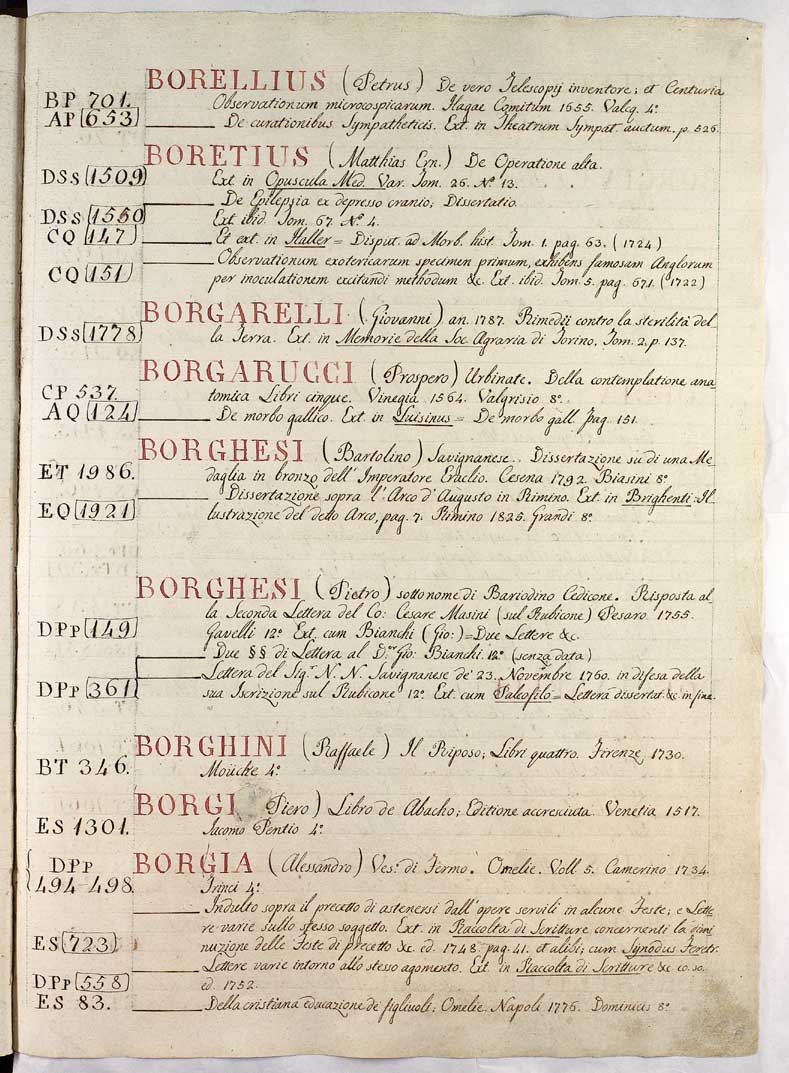 BORELLIUS (Petrus) De vero Telescopij inventore; et Centuria
BP 701. Observationum microcospicarum. Hagae Comitum 1655. Valcq. 4.º
AP 653 De curationibus Sympatheticis. Ext. in Theatrum Sympat. auctum. p. 526.
BORETIUS (Matthias Ern.) De Operatione alta.
DSs 1509 Ext. in Opuscula Med. Var. Tom. 26. Nº. 13.
De Epilepsia ex depresso cranio; Dissertatio
DSs 1550 Ext. ibid. Tom. 67. Nº. 4.
CQ 147 Et ext. in Haller = Disput. ad Morb. hist. Tom. 1. pag. 63. (1724)
Observationum exotericarum specimen primum, exhibens famosam Anglorum
CQ 151 per inoculationem excitandi methodum &c. Ext. ibid. Tom. 5. pag. 671. (1722)
BORGARELLI (Giovanni) an. 1787. Rimedii contro la sterilità del-
DSs 1778 la Terra. Ext. in Memorie della Soc. Agraria di Torino. Tom. 2. p. 137.
BORGARUCCI (Prospero) Urbinate. Della contemplatione ana-
CP 537. tomica Libri cinque. Vinegia 1564. Valgrisio 8.º
AQ 124 De morbo gallico. Ext. in Luisinus = De morbo gall. pag. 151.
BORGHESI (Bartolino) Savignanese. Dissertazione su di una Me-
ET 1986. daglia in bronzo dell' Imperatore Eraclio. Cesena 1792. Biasini 8.º
Dissertazione sopra l'Arco d'Augusto in Rimino. Ext. in Brighenti: Il-
EQ 1921 lustrazione del detto Arco, pag. 7. Rimino 1825. Grandi 8.º
BORGHESI (Pietro) sotto nome di Bariodino Cedicone. Risposta al-
la Seconda Lettera del Co: Cesare Masini (sul Rubicone) Pesaro 1755.
DPp 149 Gavelli 12.º Ext. cum Bianchi (Gio:) = Due Lettere &c.
Due §§ di Lettera al D.r Gio: Bianchi. 12.º (senza data)
Lettera del Sig.r N. N. Savignanese de' 23. Novembre 1760. in difesa della
DPp 361 sua Iscrizione sul Rubicone 12.º Ext. cum Paleofilo = Lettera dissertat. &c. in fine.
BORGHINI (Raffaele) Il Riposo; Libri quattro. Firenze 1730.
BT 346. Moücke 4.º
BORGI Piero) Libro de Abacho; Editione accresciuta. Venetia 1517.
ES 1301. Jacomo Pentio 4.º
DPp BORGIA (Alessandro) Ves.º di Fermo. Omelie. Voll. 5. Camerino 1734.
494-498. Trinci 4.º
Indulto sopra il precetto di astenersi dall'opere servili in alcune Feste; e Lette-
re varie sullo stesso soggetto. Ext. in Raccolta di Scritture concernenti la dimi-
ES 723 nuzione delle Feste di precetto &c. ed. 1748. pag. 41. et alibi; cum Synodus Feretr.
Lettere varie intorno allo stesso agomento. Ext. in Raccolta di Scritture &c. co. so.
DPp 558 ed. 1752.
ES 83. Della cristiana educazione de' figliuoli; Omelie. Napoli 1776. Dominicis 8.º